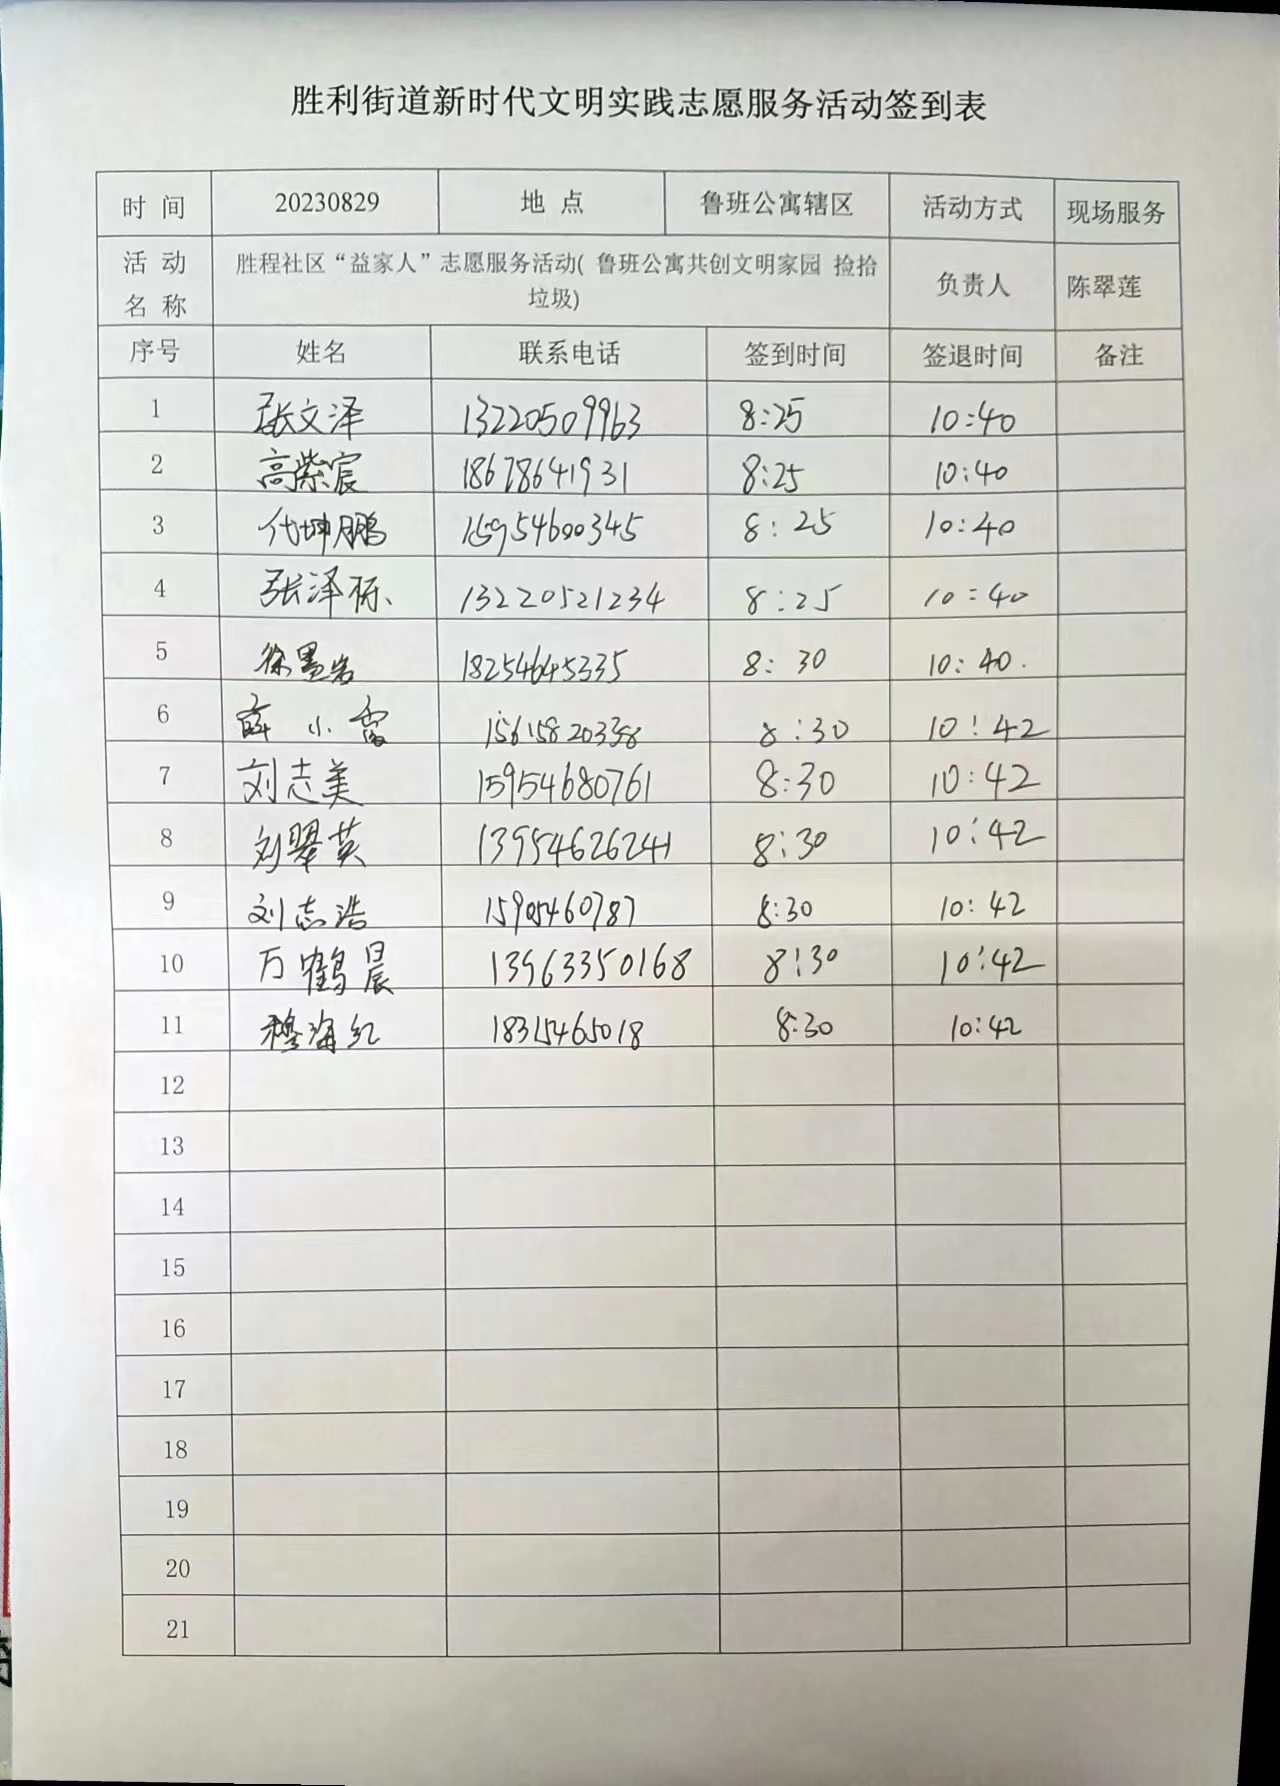 胜利街道新时代文明实践志愿服务活动签到表
时 间 20230829 地 点 鲁班公寓辖区 活动方式 现场服务
活 动 名 称 胜程社区“益家人”志愿服务活动( 鲁班公寓共创文明家园 捡拾
垃圾) 负责人 陈翠莲
序号 姓名 联系电话 签到时间 签退时间 备注
1 张文泽 13220509963 8:25 10:40
2 高紫宸 18678641931 8:25 10:40
3 代坤鹏 15954600345 8:25 10:40
4 张泽栎 13220521234 8:25 10:40
5 徐墨岩 18254645335 8:30 10:40.
6 薛小雷 15615820338 8:30 10:42
7 刘志美 15954680761 8:30 10:42
8 刘翠英 13954626241 8:30 10:42
9 刘志浩 15905460787 8:30 10:42
10 万鹤晨 13963350168 8:30 10:42
11 穆海红 18315465018 8:30 10:42
12
13
14
15
16
17
18
19
20
21